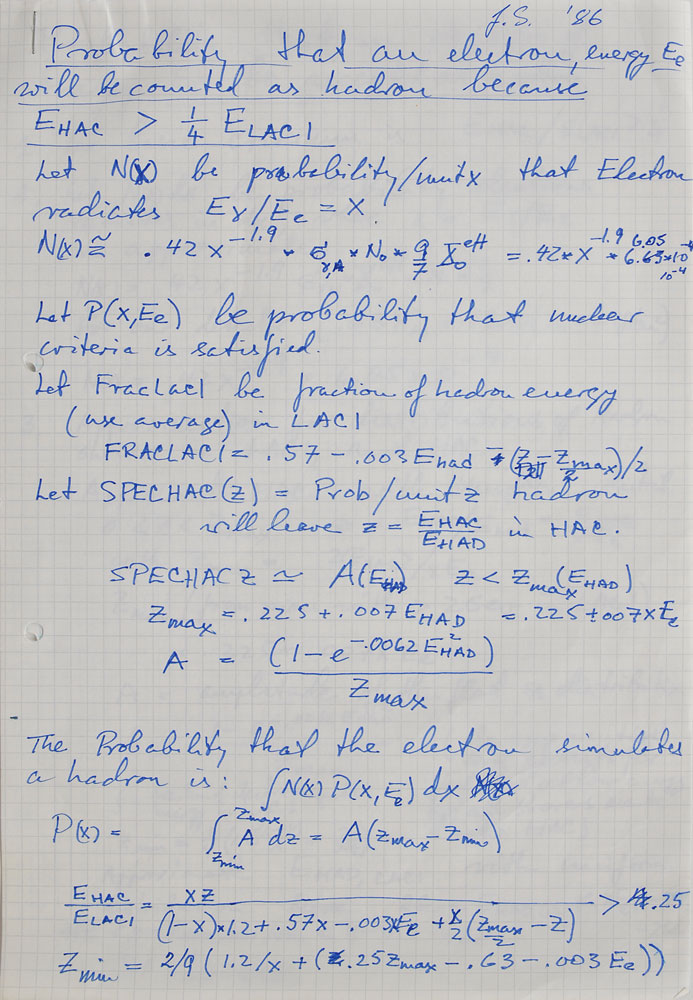 J.S. '86
Probability that an electron, energy Ee
will be counted as hadron because
EHAC > 1/4 ELAC1
Let N(X) be probability/unit x that Electron
radiates Eγ/Ee = X.
N(X) ≅ .42 X^-1.9 * σγ,A * No * 9/7 Xo^eff = .42*X^-1.9 * 6.63*10^-4
6.05 10^-4
Let P(X,Ee) be probability that nuclear
criteria is satisfied.
Let Fraclac1 be fraction of hadron energy
(use average) in LAC1
FRACLAC1 = .57 - .003 Ehad - (Z - Zmax/2)/2
Let SPECHAC(Z) = Prob/unit z hadron
will leave z = EHAC/EHAD in HAC.
SPECHAC Z ≃ A(EHAD) Z < Zmax(EHAD)
Zmax = .225 + .007 EHAD = .225+007XEe
A = (1 - e^-.0062 EHAD^2) / Zmax
The Probability that the electron simulates
a hadron is: ∫N(X) P(X,Ee) dx
P(X) = ∫Zmin^Zmax A dz = A(Zmax - Zmin)
EHAC/ELAC1 = XZ / ((1-X)*1.2 + .57X - .003XEe + X/2 (Zmax/2 - Z)) > .25
Zmin = 2/9 (1.2/X + (.25Zmax - .63 - .003 Ee))